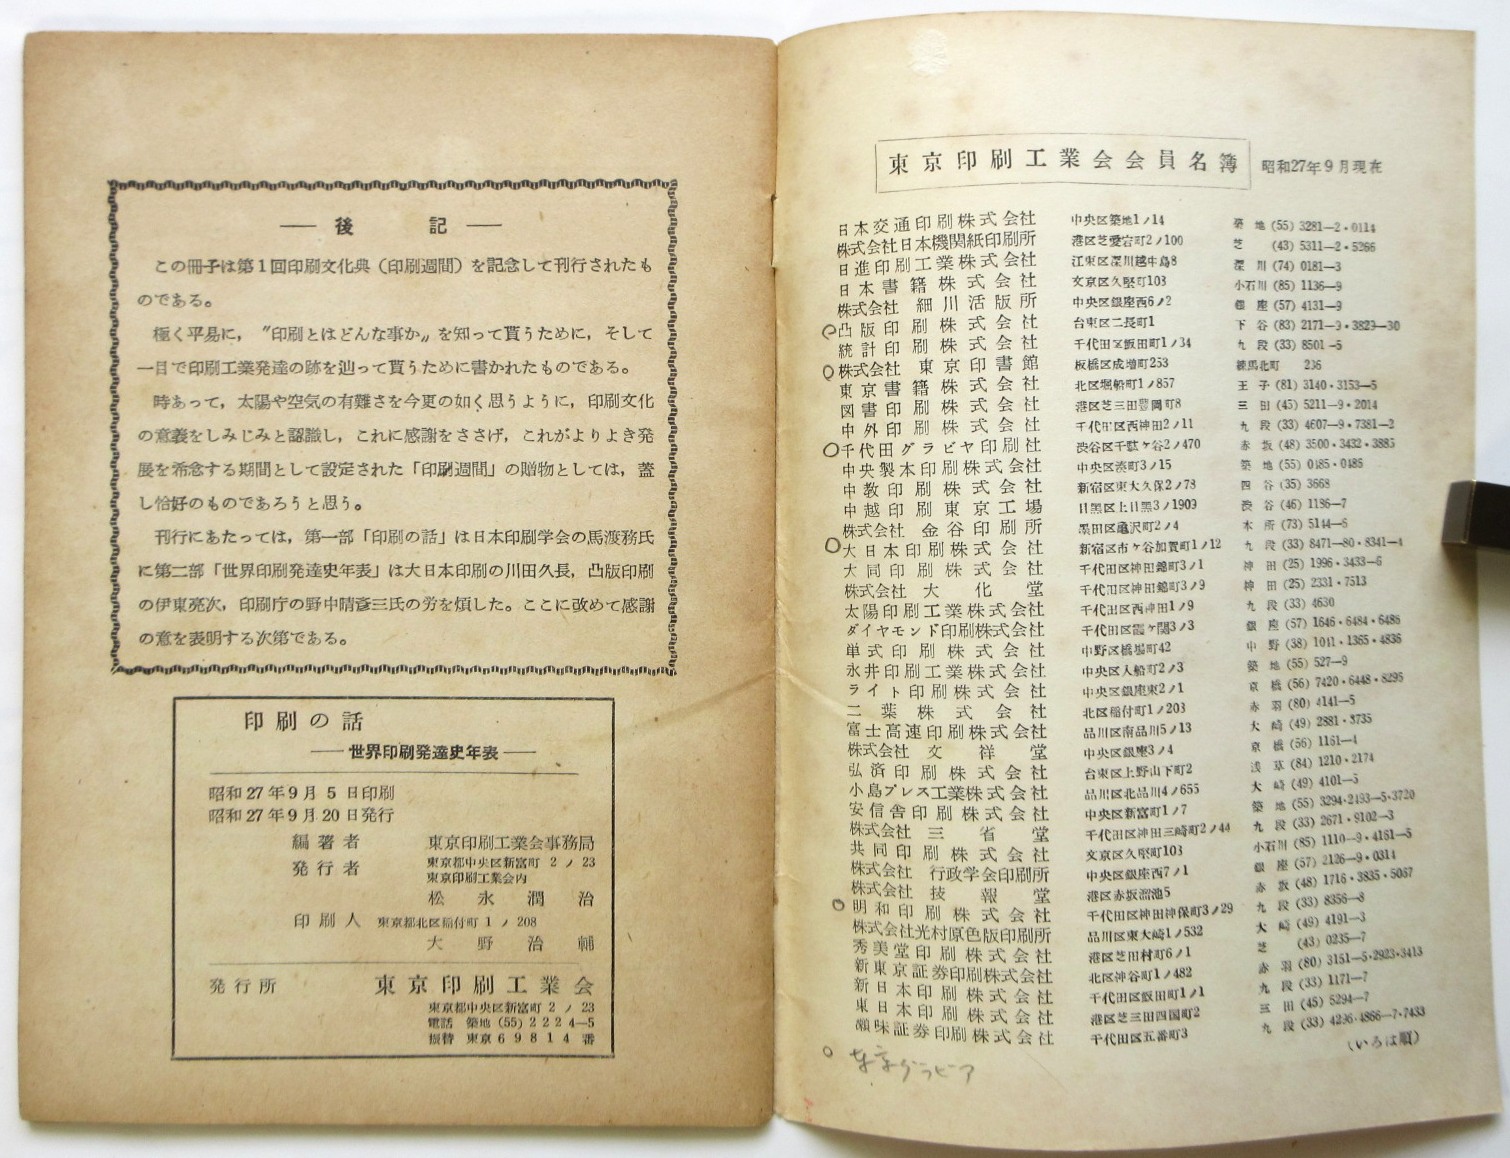 ― 後 記 ―
この冊子は第1回印刷文化典（印刷週間）を記念して刊行されたも
のである。
極く平易に，〝印刷とはどんな事か〟を知って貰うために，そして
一目で印刷工業発達の跡を辿って貰うために書かれたものである。
時あって，太陽や空気の有難さを今更の如く思うように，印刷文化
の意義をしみじみと認識し，これに感謝をささげ，これがよりよき発
展を希念する期間として設定された「印刷週間」の贈物としては，蓋
し恰好のものであろうと思う。
刊行にあたっては，第一部「印刷の話」は日本印刷学会の馬渡務氏
に第二部「世界印刷発達史年表」は大日本印刷の川田久長，凸版印刷
の伊東亮次，印刷庁の野中晴彦三氏の労を煩した。ここに改めて感謝
の意を表明する次第である。
印刷の話
――世界印刷発達史年表――
昭和27年9月 5 日印刷
昭和27年9月20日発行
編著者 東京印刷工業会事務局
発行者 東京都中央区新富町2ノ23
東京印刷工業会内
松永潤治
印刷人 東京都北区稲付町1ノ208
大野治輔
発行所 東京印刷工業会
東京都中央区新富町2ノ23
電話 築地(55)2224―5
振替 東京69814番
東京印刷工業会会員名簿 昭和27年9月現在
日本交通印刷株式会社 中央区築地1ノ14 築地(55)3281―2・0114
株式会社日本機関紙印刷所 港区芝愛宕町2ノ100 芝(43)5311―2・5266
日進印刷工業株式会社 江東区深川越中島8 深川(74)0181―3
日本書籍株式会社 文京区久堅町108 小石川(85)1136―9
株式会社 細川活版所 中央区銀座西6ノ2 銀座(57)4131―9
凸版印刷株式会社 台東区二長町1 下谷(83)2171―9・3829―30
統計印刷株式会社 千代田区飯田町1ノ34 九段(33)8501―5
株式会社 東京印書館 板橋区成増町253 練馬北町 236
東京書籍株式会社 北区堀船町1ノ857 王子(81)3140・3153―5
図書印刷株式会社 港区芝三田豊岡町8 三田(45)5211―9・2014
中外印刷株式会社 千代田区西神田2ノ11 九段(33)4607―9・7381―2
千代田グラビヤ印刷社 渋谷区千駄ケ谷2ノ470 赤坂(48)3500・3432・3885
中央製本印刷株式会社 中央区湊町3ノ15 築地(55)0185・0485
中教印刷株式会社 新宿区東大久保2ノ78 四谷(35)3668
中越印刷東京工場 目黒区上目黒3ノ1909 渋谷(46)1186―7
株式会社 金谷印刷所 墨田区亀沢町2ノ4 本所(73)5144―6
大日本印刷株式会社 新宿区市ケ谷加賀町1ノ12 九段(33)8471―80・8341―4
大同印刷株式会社 千代田区神田錦町3ノ1 神田(25)1996・3433―6
株式会社 大化堂 千代田区神田錦町3ノ9 神田(25)2331・7513
太陽印刷工業株式会社 千代田区西神田1ノ9 九段(33)4630
ダイヤモンド印刷株式会社 千代田区霞ケ関3ノ3 銀座(57)1646・6484・6486
単式印刷株式会社 中野区橋場町42 中野(38)1011・1365・4836
永井印刷工業株式会社 中央区入船町2ノ3 築地(55)527―9
ライト印刷株式会社 中央区銀座東2ノ1 京橋(56)7420・6448・8295
二葉株式会社 北区稲付町1ノ208 赤羽(80)4141―5
富士高速印刷株式会社 品川区南品川5ノ13 大崎(49)2881・3735
株式会社 文祥堂 中央区銀座3ノ4 京橋(56)1151―4
弘済印刷株式会社 台東区上野山下町2 浅草(84)1210・2174
小島プレス工業株式会社 品川区北品川4ノ655 大崎(49)4101―5
安信舎印刷株式会社 中央区新富町1ノ7 築地(55)3294・2193―5・3720
株式会社 三省堂 千代田区神田三崎町2ノ44 九段(33)2671・9102―3
共同印刷株式会社 文京区久堅町108 小石川(85)1110―9・4161―5
株式会社 行政学会印刷所 中央区銀座西7ノ1 銀座(57)2126―9・0314
株式会社 技報堂 港区赤坂溜池5 赤坂(48)1716・3835・5067
明和印刷株式会社 千代田区神田神保町3ノ29 九段(33)8356―8
株式会社光村原色版印刷所 品川区東大崎1ノ532 大崎(49)4191―3
秀美堂印刷株式会社 港区芝田村町6ノ1 芝(43)0235―7
新東京証券印刷株式会社 北区神谷町1ノ482 赤羽(80)3151―5・2923・3413
新日本印刷株式会社 千代田区飯田町1ノ1 九段(33)1171―7
東日本印刷株式会社 港区芝三田四国町2 三田(45)5294―7
瀬味証券印刷株式会社 千代田区五番町3 九段(33)4296・4866―7・7433
(いろは順)
東京グラビア